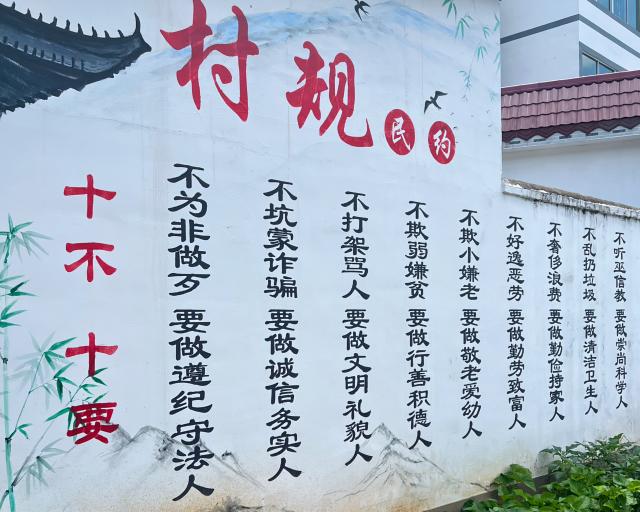 村规民约
十不 十要
不为非做歹 要做遵纪守法人
不坑蒙诈骗 要做诚信务实人
不打架骂人 要做文明礼貌人
不欺弱嫌贫 要做行善积德人
不欺小嫌老 要做敬老爱幼人
不好逸恶劳 要做勤劳致富人
不奢侈浪费 要做勤俭持家人
不乱扔垃圾 要做清洁卫生人
不听巫信教 要做崇尚科学人